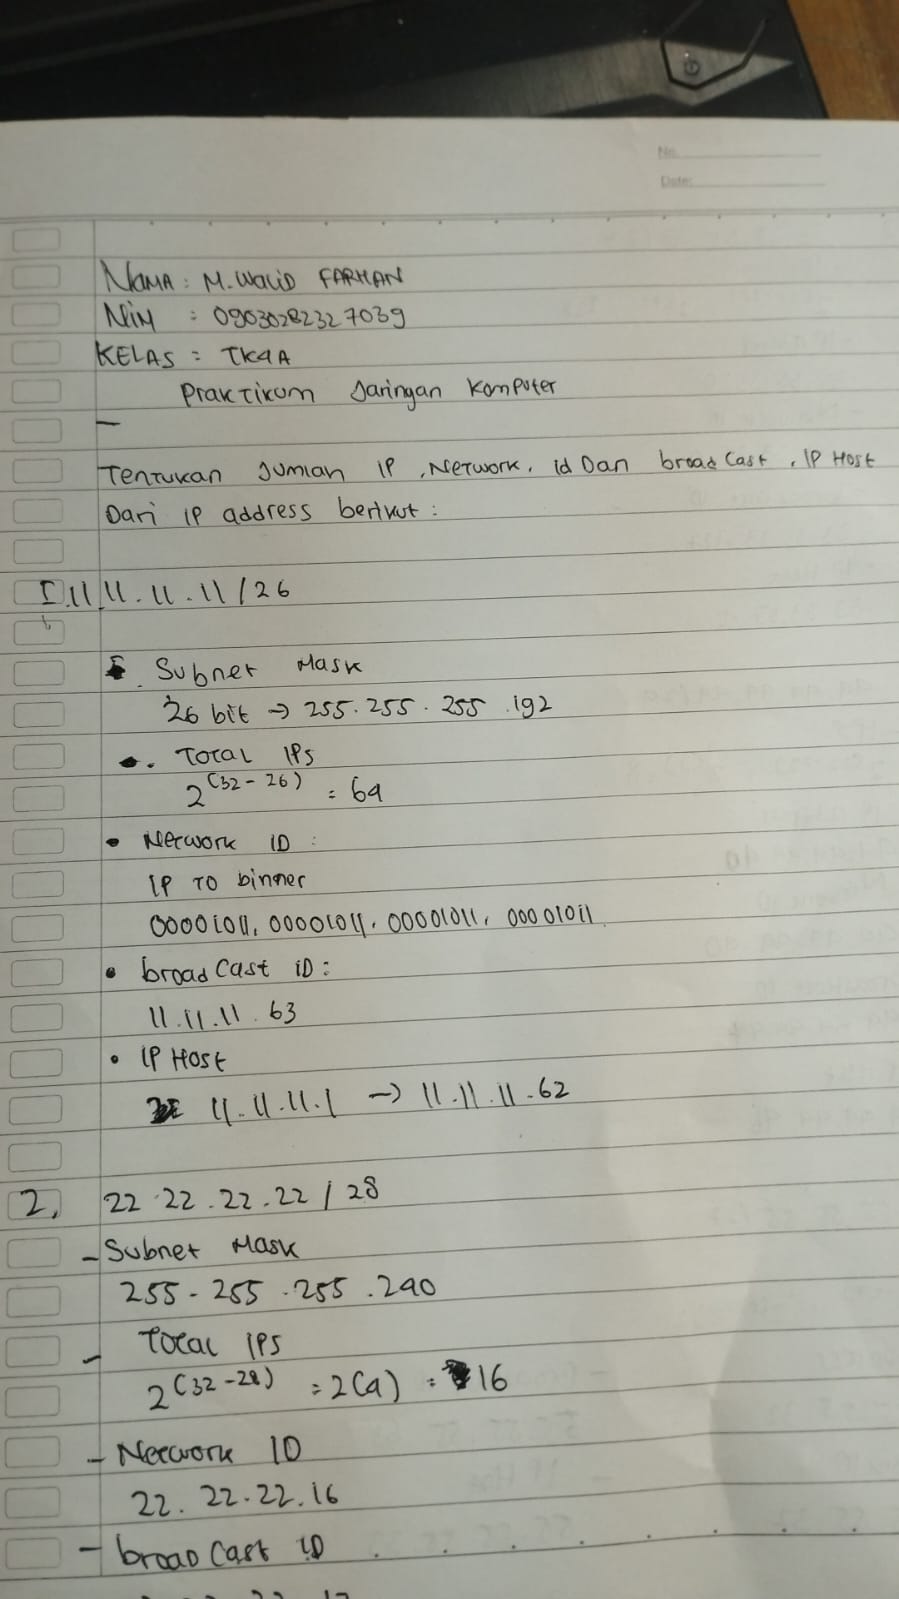 No.
Date:
Nama : M. Walid FARHAN
Nim : 09030282327039
KELAS : TK4A
Praktikum Jaringan Komputer
Tentukan Jumlah IP, Network, id Dan broadcast, IP Host
Dari IP address berikut :
I. 11.11.11.11/26
Subnet Mask
26 bit → 255.255.255.192
• Total IPs
2^(32-26) = 64
• Network ID :
IP TO binner
00001011.00001011.00001011.00001011
• broadcast ID :
11.11.11.63
• IP Host
11.11.11.1 → 11.11.11.62
2. 22.22.22.22/28
- Subnet Mask
255.255.255.240
- Total IPs
2^(32-28) = 2(4) = 16
- Network ID
22.22.22.16
- broadcast ID